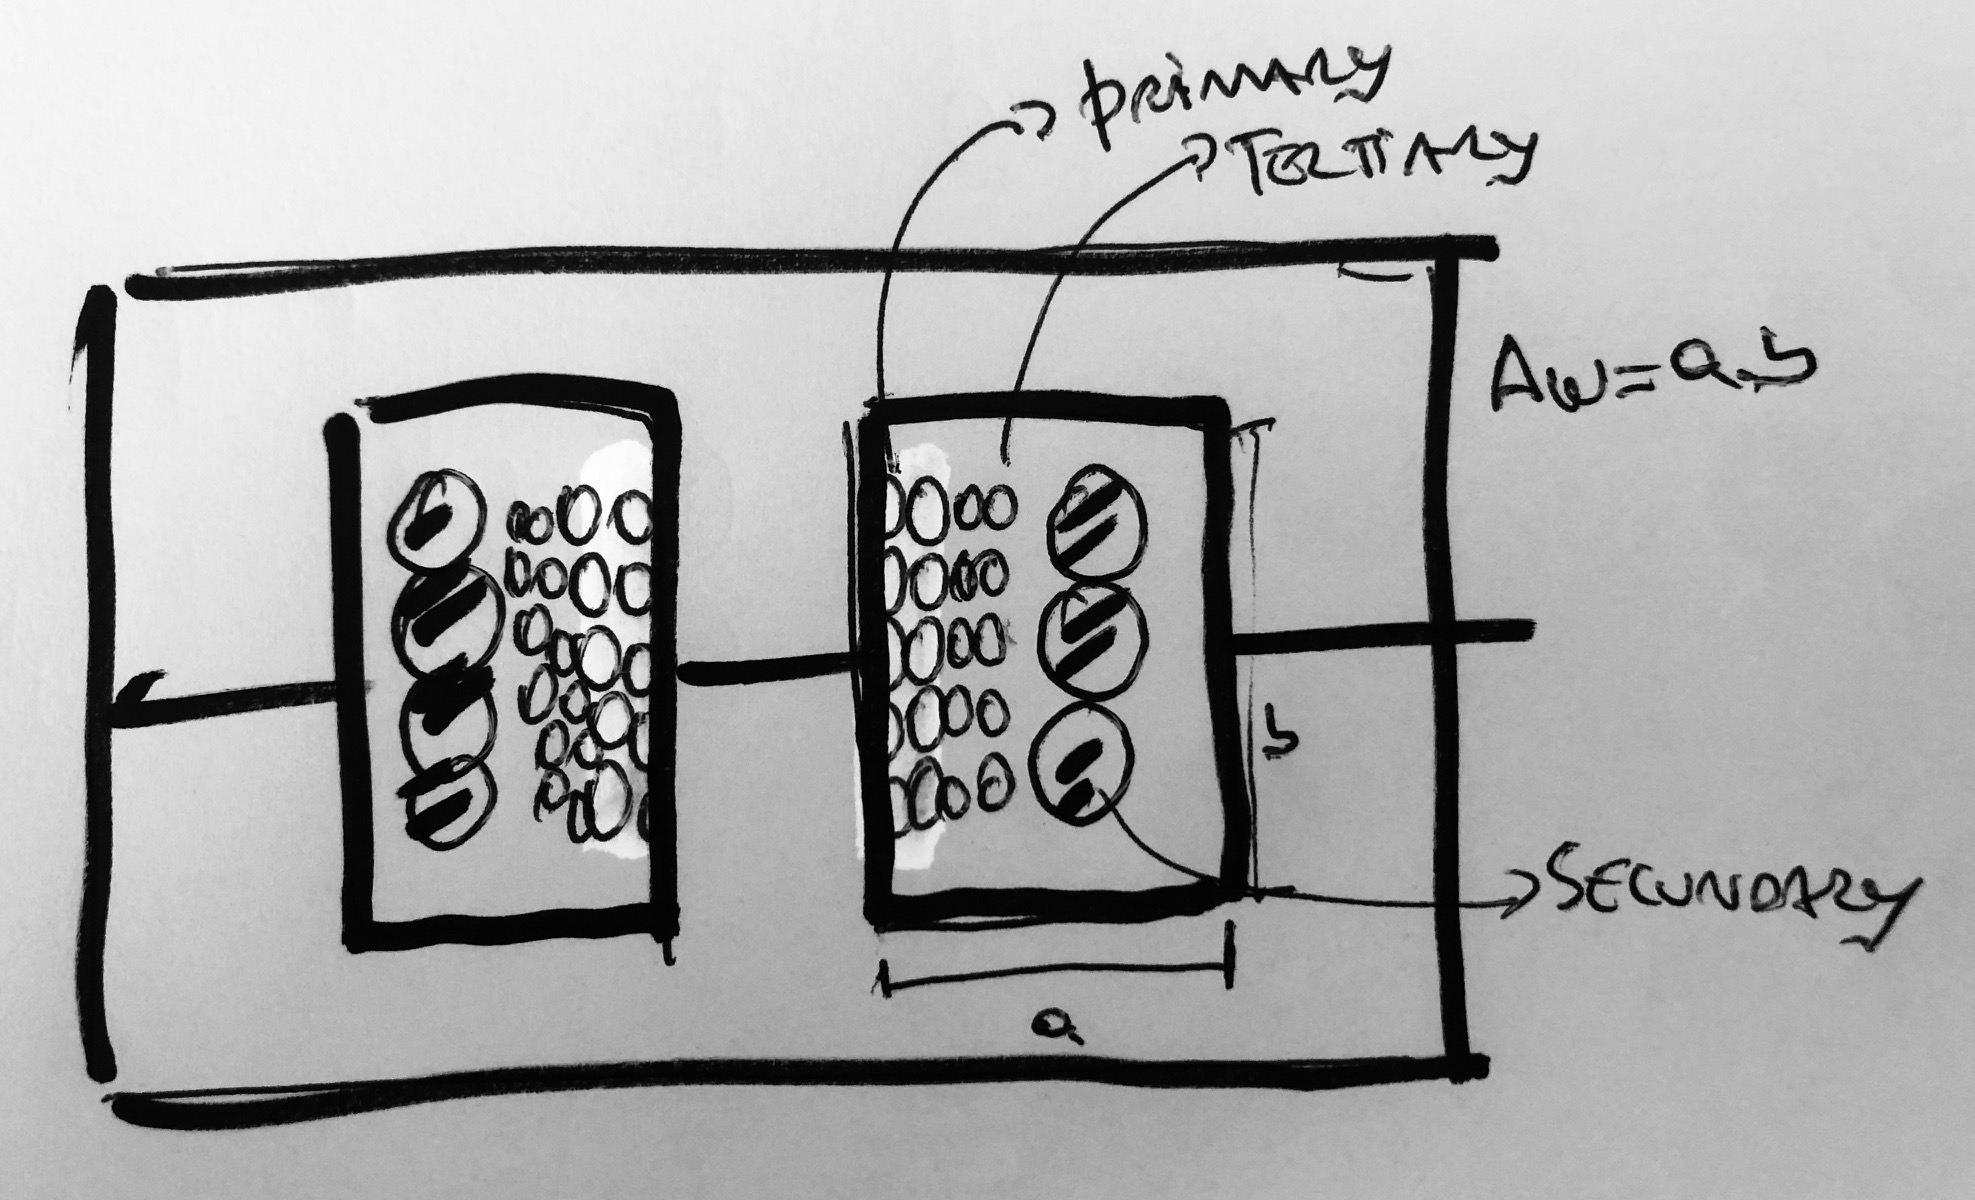 PRIMARY
TERTIARY
Aw=a.b
b
SECUNDARY
a